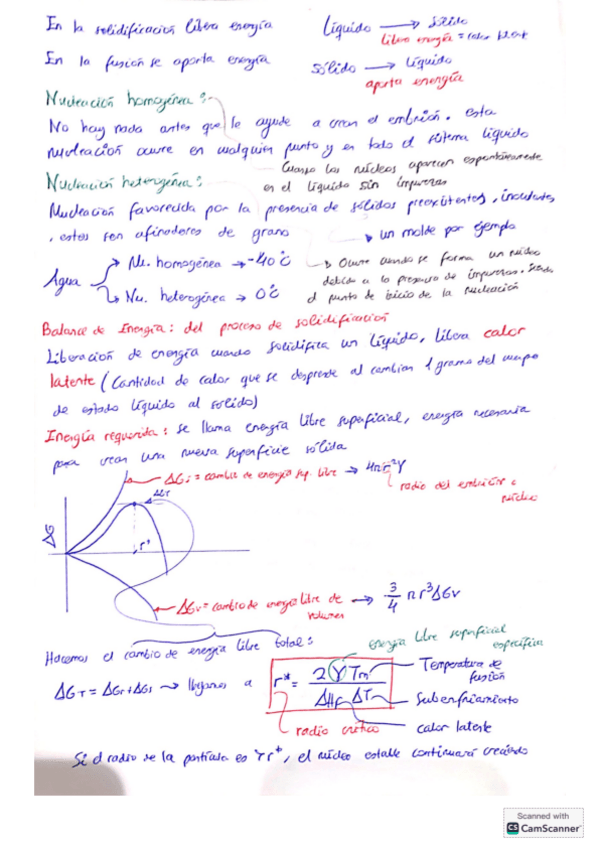 En la solidificación libera energía
Líquido → Sólido
libera energía = calor latent
En la fusión se aporta energía
Sólido → Líquido
aporta energía
Nucleación homogénea:
No hay nada antes que le ayude a crear el embrión. esta
nucleación ocurre en cualquier punto y en todo el sistema líquido
Cuando los núcleos aparecen espontáneamente
en el líquido sin impurezas
Nucleación heterogénea:
Nucleación favorecida por la presencia de sólidos preexistentes, inoculantes,
, estos son afinadores de grano
un molde por ejemplo
Agua
Nu. homogénea → -40°C
Nu. heterogénea → 0°C
Ocurre cuando se forma un núcleo
debido a la presencia de impurezas.
el punto de inicio de la nucleación
Balance de Energía: del proceso de solidificación
Liberación de energía cuando solidifica un líquido, libera calor
latente (Cantidad de calor que se desprende al cambiar 1 gramo del cuerpo
de estado líquido al solido)
Energía requerida: se llama energía libre superficial, energía necesaria
para crear una nueva superficie sólida
ΔGs = cambio de energía sup. libre → 4πr²γ
radio del embrión o
núcleo
ΔGr
r*
ΔG
ΔGv = cambio de energía libre de
volumen
→ 3/4 πr³ΔGv
Hacemos el cambio de energía libre total:
energía libre superficial
específica
ΔGT = ΔGr + ΔGs → llegamos a
r* = 2γTm / ΔHf ΔT
Temperatura de
fusión
Subenfriamiento
calor latente
radio crítico
Si el radio de la partícula es > r*, el núcleo estable continuará creciendo
Scanned with
CS CamScanner